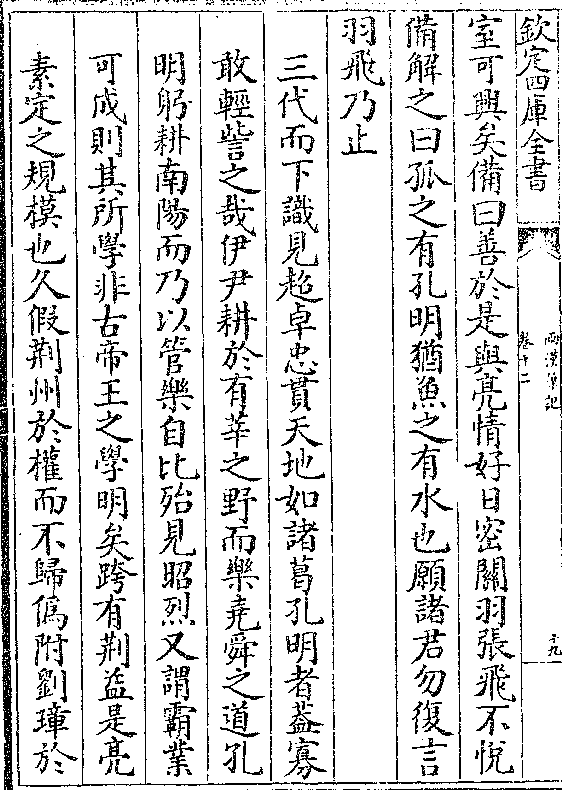 欽定四庫全書
兩漢筆記
卷十二
十九
室可興矣備曰善於是與亮情好日密關羽張飛不悅
備解之曰孤之有孔明猶魚之有水也願諸君勿復言
羽飛乃止
三代而下識見超卓忠貫天地如諸葛孔明者葢寡
敢輕訾之哉伊尹耕於有莘之野而樂堯舜之道孔
明躬耕南陽而乃以管樂自比殆見昭烈又謂霸業
可成則其所學非古帝王之學明矣跨有荆益是亮
素定之規模也久假荆州於權而不歸僞附劉璋於